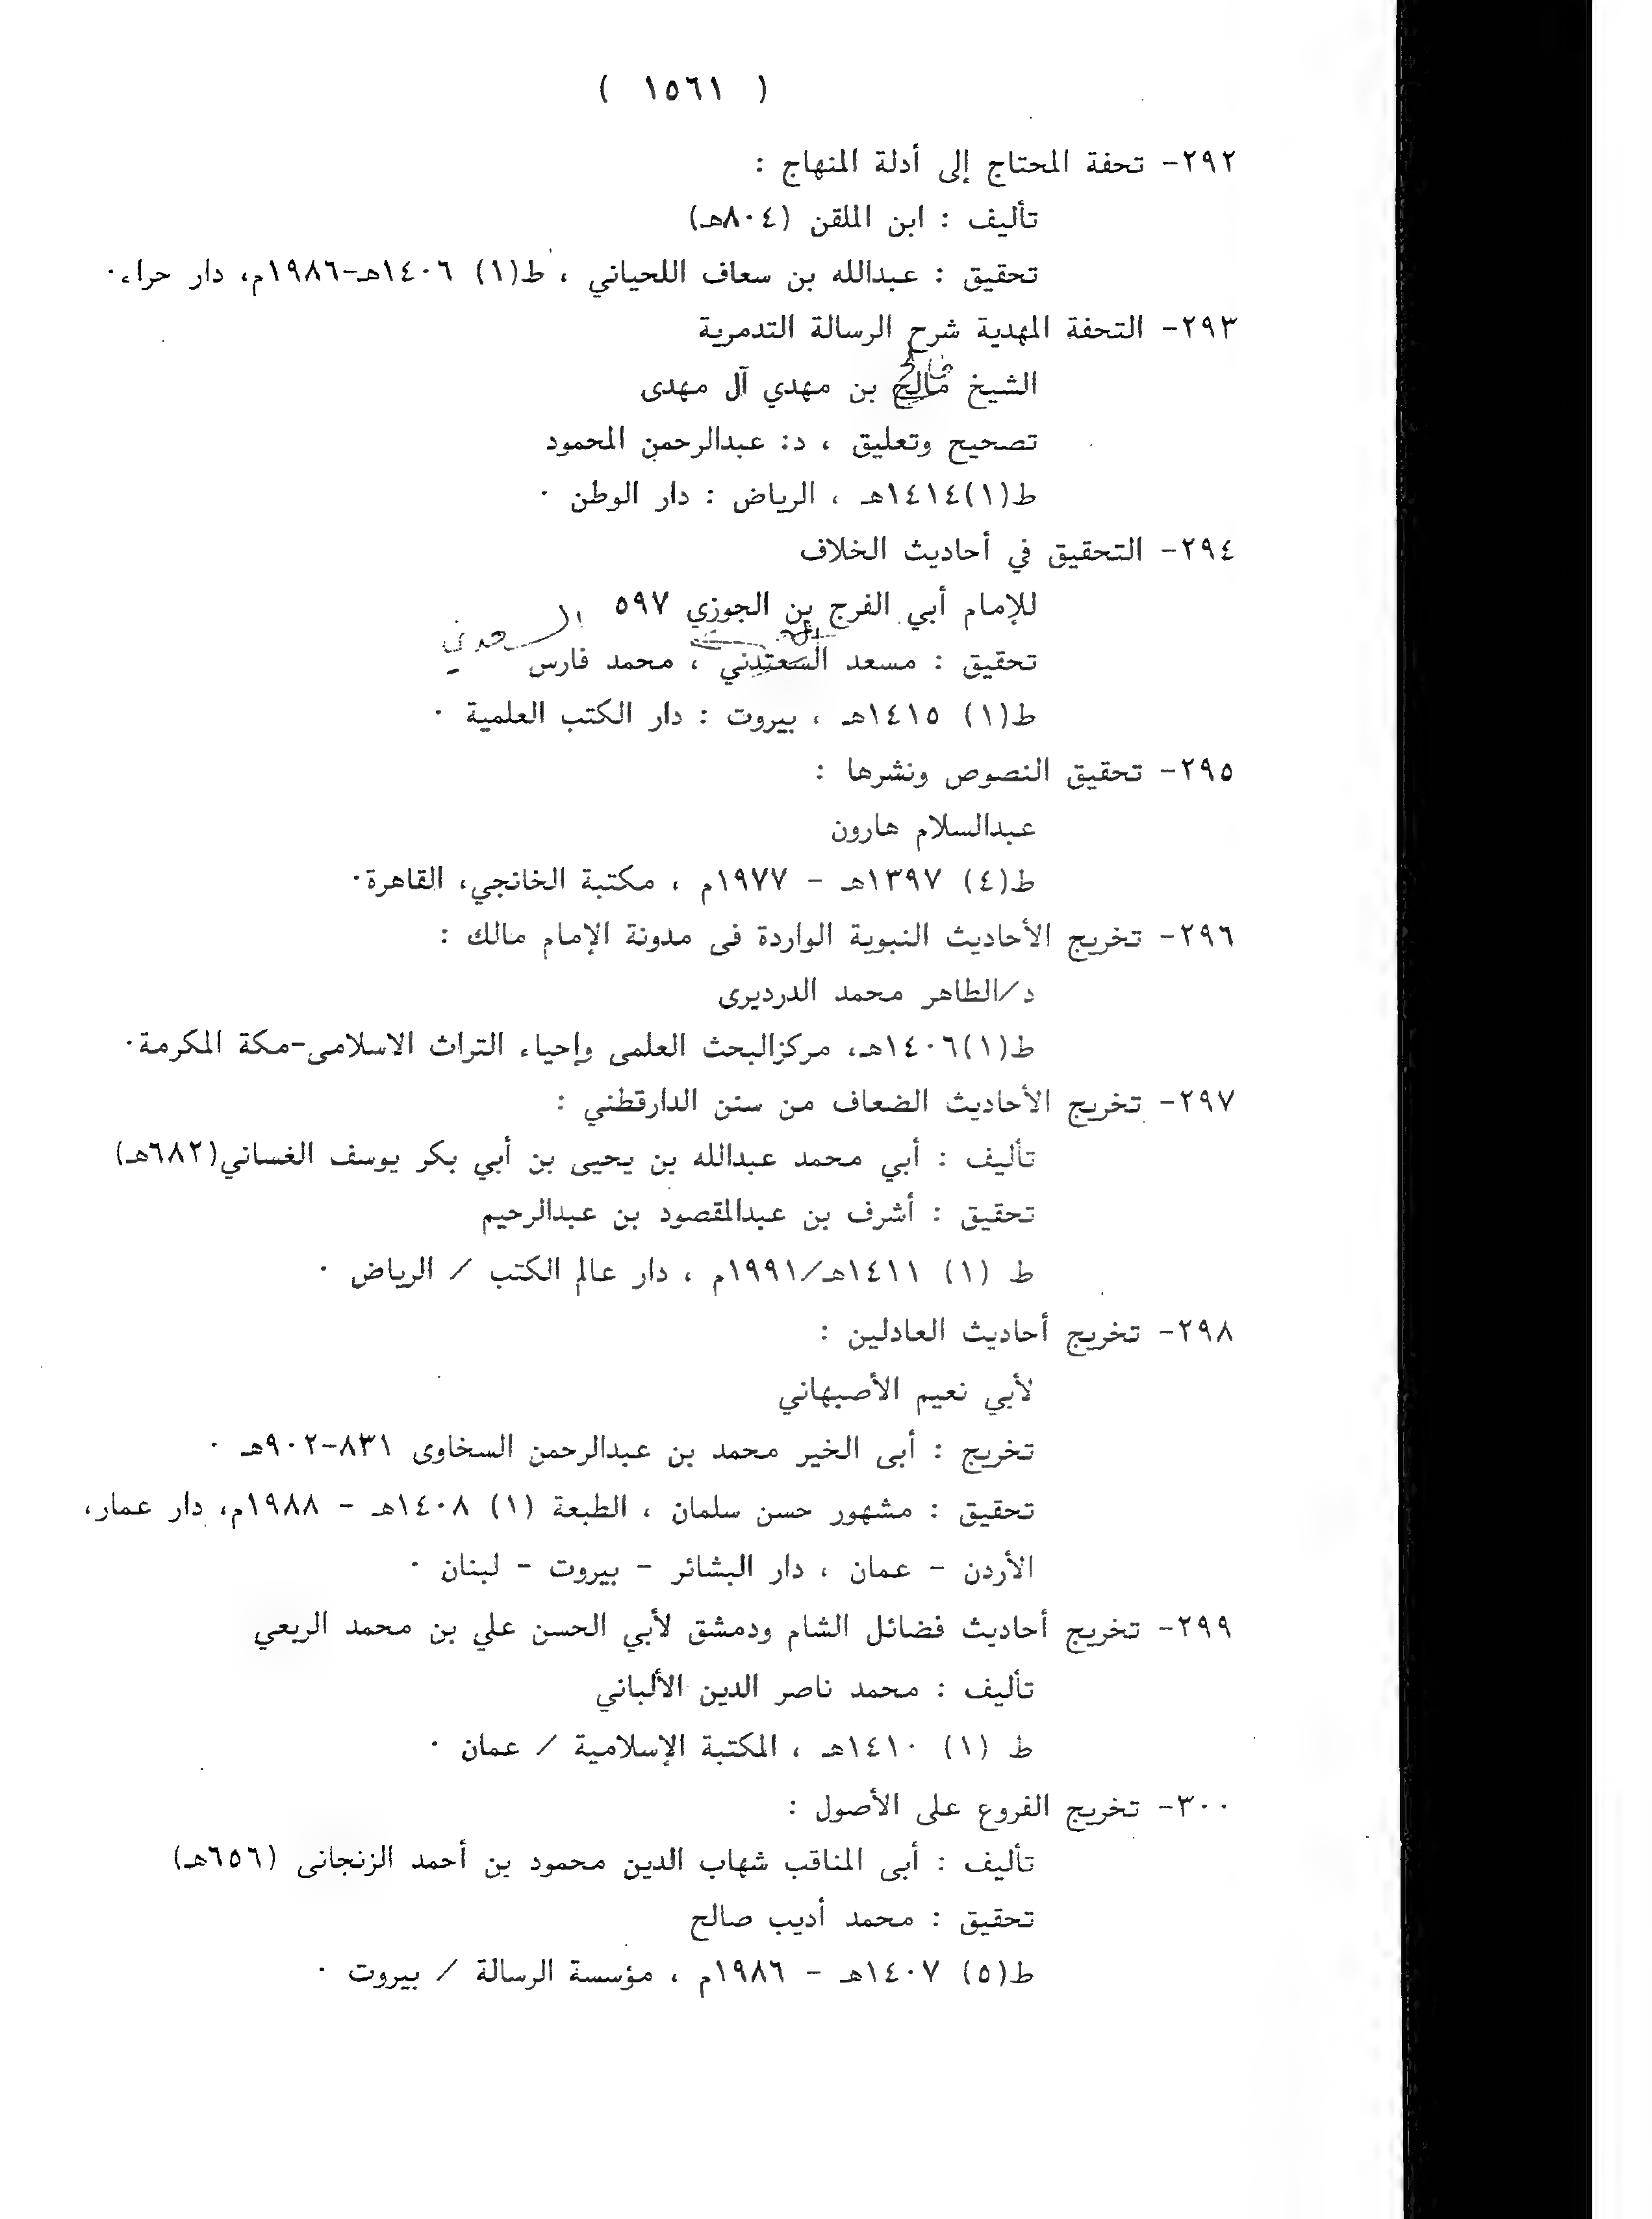 ( ١٥٦١ )
٢٩٢- تحفة المحتاج إلى أدلة المنهاج :
تأليف : ابن الملقن (٨٠٤هـ)
تحقيق : عبدالله بن سعاف اللحياني ، ط(١) ١٤٠٦هـ-١٩٨٦م، دار حراء.
٢٩٣- التحفة المهدية شرح الرسالة التدمرية
الشيخ فالح بن مهدي آل مهدى
تصحيح وتعليق ، د: عبدالرحمن المحمود
ط(١)١٤١٤هـ ، الرياض : دار الوطن .
٢٩٤- التحقيق في أحاديث الخلاف
للإمام أبي الفرج بن الجوزي ٥٩٧
السعدني
تحقيق : مسعد ، محمد فارس
ط(١) ١٤١٥هـ ، بيروت : دار الكتب العلمية .
٢٩٥- تحقيق النصوص ونشرها :
عبدالسلام هارون
ط(٤) ١٣٩٧هـ - ١٩٧٧م ، مكتبة الخانجي، القاهرة.
٢٩٦- تخريج الأحاديث النبوية الواردة فى مدونة الإمام مالك :
د/الطاهر محمد الدرديرى
ط(١)١٤٠٦هـ، مركزالبحث العلمى وإحياء التراث الاسلامى-مكة المكرمة.
٢٩٧- تخريج الأحاديث الضعاف من سنن الدارقطني :
تأليف : أبي محمد عبدالله بن يحيى بن أبي بكر يوسف الغساني(٦٨٢هـ)
تحقيق : أشرف بن عبدالمقصود بن عبدالرحيم
ط (١) ١٤١١هـ/١٩٩١م ، دار عالم الكتب / الرياض .
٢٩٨- تخريج أحاديث العادلين :
لأبي نعيم الأصبهاني
تخريج : أبى الخير محمد بن عبدالرحمن السخاوى ٨٣١-٩٠٢هـ .
تحقيق : مشهور حسن سلمان ، الطبعة (١) ١٤٠٨هـ - ١٩٨٨م، دار عمار،
الأردن - عمان ، دار البشائر - بيروت - لبنان .
٢٩٩- تخريج أحاديث فضائل الشام ودمشق لأبي الحسن علي بن محمد الربعي
تأليف : محمد ناصر الدين الألباني
ط (١) ١٤١٠هـ ، المكتبة الإسلامية / عمان .
٣٠٠- تخريج الفروع على الأصول :
تأليف : أبى المناقب شهاب الدين محمود بن أحمد الزنجانى (٦٥٦هـ)
تحقيق : محمد أديب صالح
ط(٥) ١٤٠٧هـ - ١٩٨٦م ، مؤسسة الرسالة / بيروت .